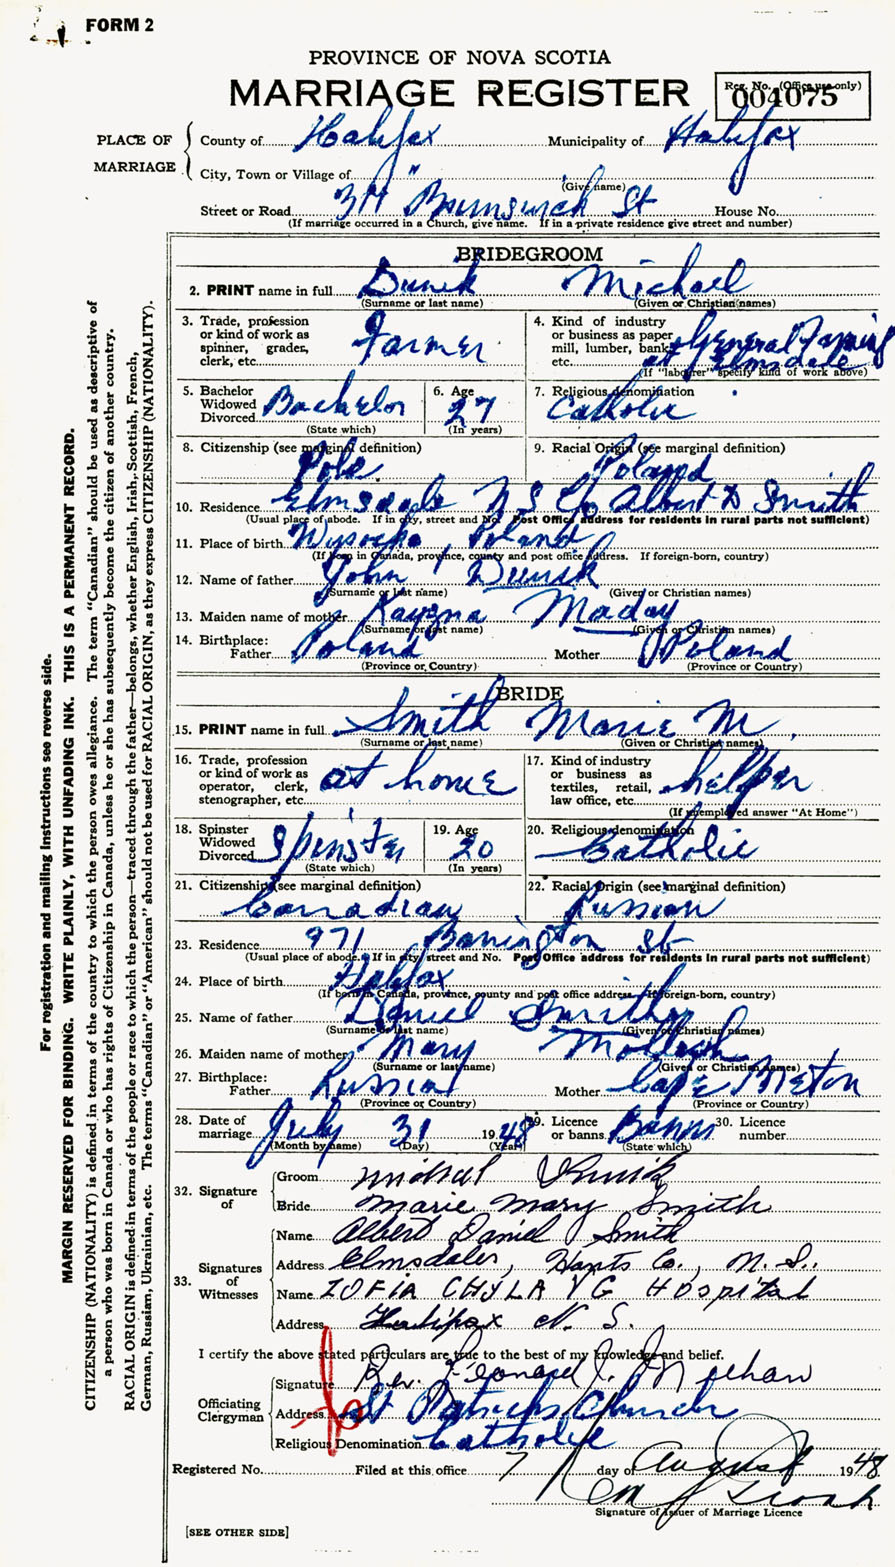 FORM 2
PROVINCE OF NOVA SCOTIA
MARRIAGE REGISTER
Reg. No. (Office use only)
004075
PLACE OF MARRIAGE
County of Halifax Municipality of Halifax
City, Town or Village of "
(Give name)
Street or Road Brunswick St House No.
(If marriage occurred in a Church, give name. If in a private residence give street and number)
BRIDEGROOM
2. PRINT name in full Dunik Michael
(Surname or last name) (Given or Christian names)
3. Trade, profession or kind of work as spinner, grades, clerk, etc. Farmer
4. Kind of industry or business as paper mill, lumber, bank, etc. General Farming at Elmsdale
(If "labourer" specify kind of work above)
5. Bachelor Widowed Divorced Bachelor
(State which)
6. Age 27
(In years)
7. Religious denomination Catholic
8. Citizenship (see marginal definition) Pole
9. Racial Origin (see marginal definition) Poland
10. Residence Elmsdale N S C/o Albert D Smith
(Usual place of abode. If in city, street and No. Post Office address for residents in rural parts not sufficient)
11. Place of birth Wysocko, Poland
(If born in Canada, province, county and post office address. If foreign-born, country)
12. Name of father John Dunik
(Surname or last name) (Given or Christian names)
13. Maiden name of mother Maday
(Surname or last name) (Given or Christian names)
14. Birthplace:
Father Poland Mother Poland
(Province or Country) (Province or Country)
BRIDE
15. PRINT name in full Smith Marie M.
(Surname or last name) (Given or Christian names)
16. Trade, profession or kind of work as operator, clerk, stenographer, etc. at home
17. Kind of industry or business as textiles, retail, law office, etc. helper
(If unemployed answer "At Home")
18. Spinster Widowed Divorced Spinster
(State which)
19. Age 20
(In years)
20. Religious denomination Catholic
21. Citizenship (see marginal definition) Canadian
22. Racial Origin (see marginal definition) Russian
23. Residence 971 Barrington St
(Usual place of abode. If in city, street and No. Post Office address for residents in rural parts not sufficient)
24. Place of birth Halifax
(If born in Canada, province, county and post office address. If foreign-born, country)
25. Name of father Daniel Smith
(Surname or last name) (Given or Christian names)
26. Maiden name of mother Mary
(Surname or last name) (Given or Christian names)
27. Birthplace:
Father Russia Mother Cape Breton
(Province or Country) (Province or Country)
28. Date of marriage July 31 1948
(Month by name) (Day) (Year)
29. Licence or banns Banns
(State which)
30. Licence number
32. Signature of
Groom Michal Dunik
Bride Marie Mary Smith
33. Signatures of Witnesses
Name Albert Daniel Smith
Address Elmsdale, Hants Co., N. S.
Name ZOFIA CHYLA V G Hospital
Address Halifax N. S.
I certify the above stated particulars are true to the best of my knowledge and belief.
Officiating Clergyman
Signature Rev. Leonard J. Meehan
Address St Patricks Church
Religious Denomination Catholic
Registered No. Filed at this office 7 day of August 1948
Signature of Issuer of Marriage Licence
[SEE OTHER SIDE]
For registration and mailing instructions see reverse side.
MARGIN RESERVED FOR BINDING. WRITE PLAINLY, WITH UNFADING INK. THIS IS A PERMANENT RECORD.
CITIZENSHIP (NATIONALITY) is defined in terms of the country to which the person owes allegiance. The term "Canadian" should be used as descriptive of
a person who was born in Canada or who has rights of Citizenship in Canada, unless he or she has subsequently become the citizen of another country.
RACIAL ORIGIN is defined in terms of the people or race to which the person—traced through the father—belongs, whether English, Irish, Scottish, French,
German, Russian, Ukrainian, etc. The terms "Canadian" or "American" should not be used for RACIAL ORIGIN, as they express CITIZENSHIP (NATIONALITY).